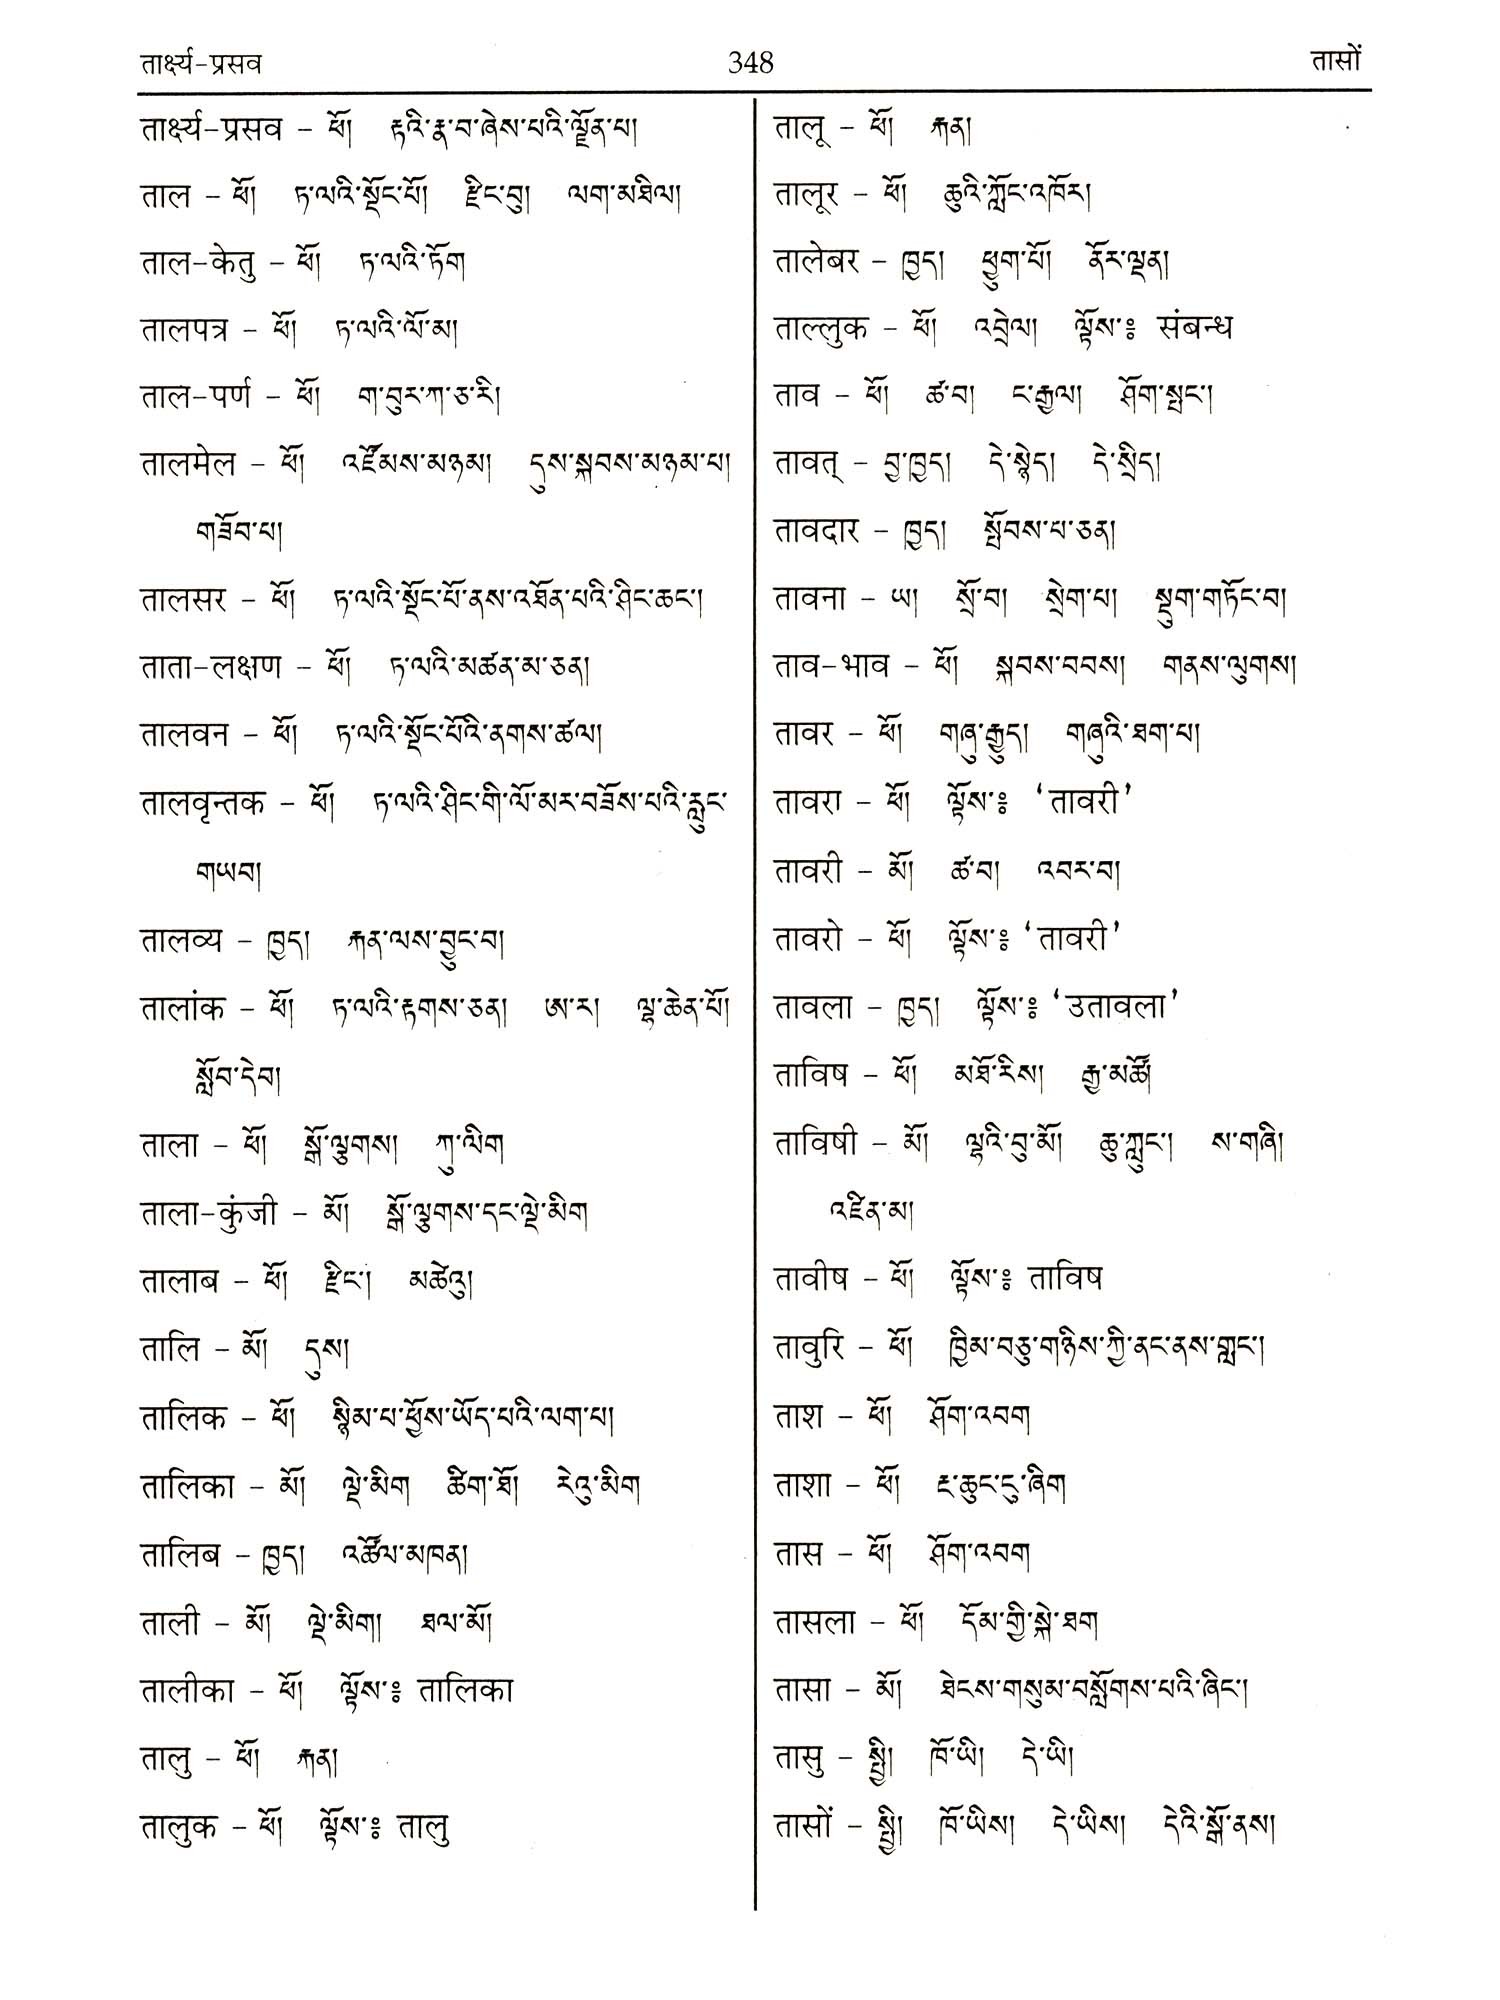 तार्क्ष्य-प्रसव 348 तासों
तार्क्ष्य-प्रसव - ཕོ། རྟའི་རྣ་བ་ཞེས་པའི་ལྗོན་པ།
ताल - ཕོ། ཏ་ལའི་སྡོང་པོ། རྫིང་བུ། ལག་མཐིལ།
ताल-केतु - ཕོ། ཏ་ལའི་ཏོག
तालपत्र - ཕོ། ཏ་ལའི་ལོ་མ།
ताल-पर्ण - ཕོ། ག་བུར་ཀ་ཅ་རི།
तालमेल - ཕོ། འཛོམས་མཉམ། དུས་སྐབས་མཉམ་པ།
གཟོབ་པ།
तालसर - ཕོ། ཏ་ལའི་སྡོང་པོ་ནས་འཐོན་པའི་ཤིང་ཆང་།
ताता-लक्षण - ཕོ། ཏ་ལའི་མཚན་མ་ཅན།
तालवन - ཕོ། ཏ་ལའི་སྡོང་པོའི་ནགས་ཚལ།
तालवृन्तक - ཕོ། ཏ་ལའི་ཤིང་གི་ལོ་མར་བཟོས་པའི་རླུང་
གཡབ།
तालव्य - ཁྱད། རྐན་ལས་བྱུང་བ།
तालांक - ཕོ། ཏ་ལའི་རྟགས་ཅན། ཨ་ར། ལྷ་ཆེན་པོ།
སློབ་དེབ།
ताला - ཕོ། སྒོ་ལྕགས། ཀུ་ལིག
ताला-कुंजी - མོ། སྒོ་ལྕགས་དང་ལྡེ་མིག
तालाब - ཕོ། རྫིང་། མཚེའུ།
तालि - མོ། དུས།
तालिक - ཕོ། སྙིམ་པ་ཕྱོས་ཡོད་པའི་ལག་པ།
तालिका - མོ། ལྡེ་མིག ཚིག་ཐོ། རེའུ་མིག
तालिब - ཁྱད། འཚོལ་མཁན།
ताली - མོ། ལྡེ་མིག། ཐལ་མོ།
तालीका - ཕོ། ལྟོས་ཿ तालिका
तालु - ཕོ། རྐན།
तालुक - ཕོ། ལྟོས་ཿ तालु
तालू - ཕོ། རྐན།
तालूर - ཕོ། ཆུའི་ཀློང་འཁོར།
तालेबर - ཁྱད། ཕྱུག་པོ། ནོར་ལྡན།
ताल्लुक - ཕོ། འབྲེལ། ལྟོས་ཿ संबन्ध
ताव - ཕོ། ཚ་བ། ང་རྒྱལ། ཤོག་སྤང་།
तावत् - བྱ་ཁྱད། དེ་སྙེད། དེ་སྲིད།
तावदार - ཁྱད། སྤོབས་པ་ཅན།
तावना - ཡ། སྲོ་བ། སྲེག་པ། སྡུག་གཏོང་བ།
ताव-भाव - ཕོ། སྐབས་བབས། གནས་ལུགས།
तावर - ཕོ། གཞུ་རྒྱུད། གཞུའི་ཐག་པ།
तावरा - ཕོ། ལྟོས་ཿ ‘तावरी’
तावरी - མོ། ཚ་བ། འབར་བ།
तावरो - ཕོ། ལྟོས་ཿ ‘तावरी’
तावला - ཁྱད། ལྟོས་ཿ ‘उतावला’
ताविष - ཕོ། མཐོ་རིས། རྒྱ་མཚོ།
ताविषी - མོ། ལྷའི་བུ་མོ། ཆུ་ཀླུང་། ས་གཞི།
འཛིན་མ།
तावीष - ཕོ། ལྟོས་ཿ ताविष
तावुरि - ཕོ། ཁྱིམ་བཅུ་གཉིས་ཀྱི་ནང་ནས་གླང་།
ताश - ཕོ། ཤོག་འབག
ताशा - ཕོ། རྔ་ཆུང་ངུ་ཞིག
तास - ཕོ། ཤོག་འབག
तासला - ཕོ། དོམ་གྱི་སྐེ་ཐག
तासा - མོ། ཐེངས་གསུམ་བསློགས་པའི་ཞིང་།
तासु - སྤྱི། ཁོ་ཡི། དེ་ཡི།
तासों - སྤྱི། ཁོ་ཡིས། དེ་ཡིས། དེའི་སྒོ་ནས།